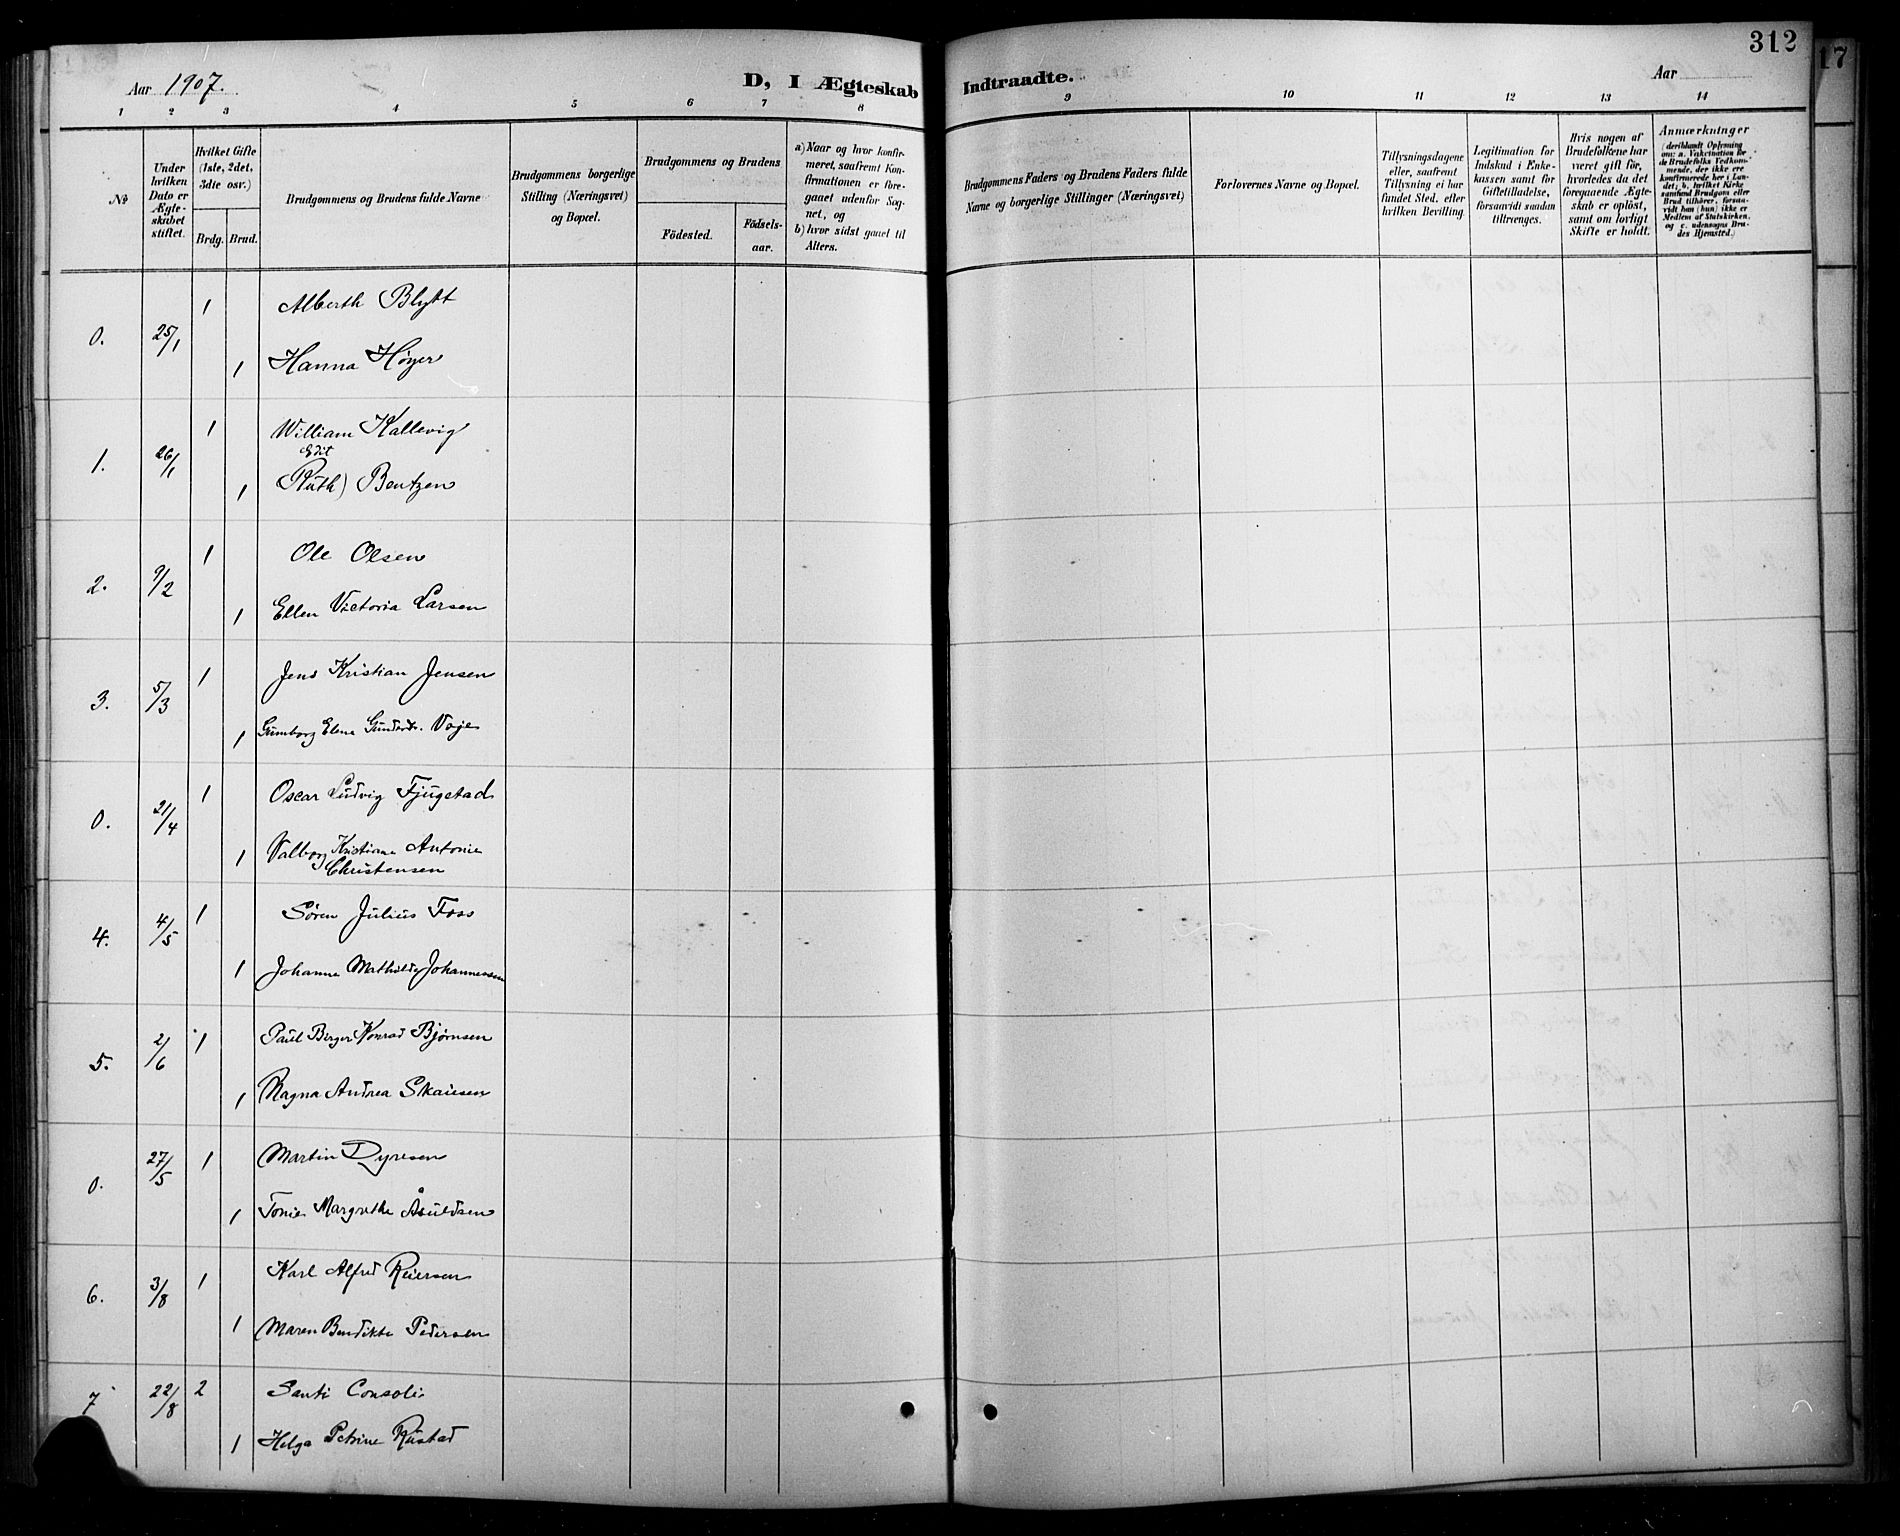 312
17
Aar 1907.
D, I Ægteskab Indtraadte.
Aar
1 2 3 4 5 6 7 8 9 10 11 12 13 14
No
Under hvilken Dato er Ægteskabet stiftet.
Hvilket Gifte (1ste, 2det, 3die osv.)
Brdg. Brud.
Brudgommens og Brudens fulde Navne
Brudgommens borgerlige Stilling (Næringsvei) og Bopæl.
Brudgommens og Brudens
Födested.
Födselsaar.
a) Naar og hvor konfirmeret, saafremt Konfirmationen er foregaaet udenfor Sognet, og
b) hvor sidst gaaet til Alters.
Brudgommens Faders og Brudens Faders fulde Navne og borgerlige Stillinger (Næringsvei)
Forlovernes Navne og Bopæl.
Tillysningsdagene eller, saafremt Tillysning ei har fundet Sted, efter hvilken Bevilling.
Legitimation for Indskud i Enkekassen samt for Giftetilladelse, forsaavidt saadan tiltrenges.
Hvis nogen af Brudefolkene har været gift för, hvorledes da det foregaaende Ægteskab er oplöst, samt om lovligt Skifte er holdt.
Anmærkninger
(deriblandt Oplysning om: a. Vakcination for de Brudefolks Vedkommende, der ikke ere konfirmerede her i Landet; b. hvilket Kirkesamfund Brudgom eller Brud tilhörer, forsaavidt han (hun) ikke er Medlem af Statskirken, og c. udensogns Brudes Hjemsted.
0. 25/1 1 Alberth Blytt
1 Hanna Höyer
1. 26/1 1 William Kallevig
Edit
1 Ruth) Bentzen
2. 9/2 1 Ole Olsen
1 Ellen Victoria Larsen
3. 5/3 1 Jens Kristian Jensen
1 Gumborg Elene Gundersdr. Voje
0. 21/4 1 Oscar Ludvig Fjugstad
1 Valborg Kristiane Antonie
Christensen
4. 4/5 1 Sören Julius Foss
1 Johanne Mathilde Johannessen
5. 2/6 1 Paul Birger Konrad Björnsen
1 Magna Andrea Skaiesen
0. 27/5 1 Martin Dyresen
1 Tonie Margrethe Åsuldsen
6. 3/8 1 Karl Alfred Reiersen
1 Maren Bendikte Pedersen
7 22/8 2 Santi Consoli
1 Helga Petrine Rustad